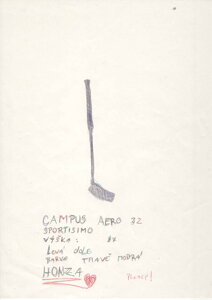 CAMPUS AERO 32
SPORTISIMO
VÝŠKA: 87
LEVÁ DOLE
BARVA TMAVĚ MODRÁ
HONZA